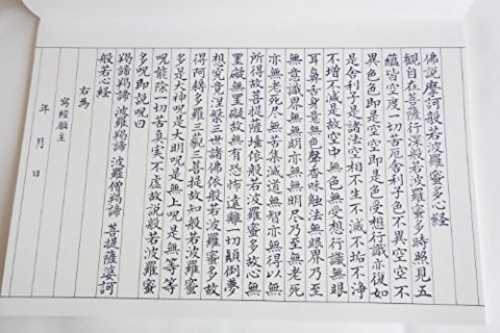 佛說摩訶般若波羅蜜多心經
觀自在菩薩行深般若波羅蜜多時照見五
蘊皆空度一切苦厄舍利子色不異空空不
異色色即是空空即是色受想行識亦復如
是舍利子是諸法空相不生不滅不垢不淨
不增不減是故空中無色無受想行識無眼
耳鼻舌身意無色聲香味觸法無眼界乃至
無意識界無無明亦無無明盡乃至無老死
亦無老死盡無苦集滅道無智亦無得以無
所得故菩提薩埵依般若波羅蜜多故心無
罣礙無罣礙故無有恐怖遠離一切顛倒夢
想究竟涅槃三世諸佛依般若波羅蜜多故
得阿耨多羅三藐三菩提故知般若波羅蜜
多是大神呪是大明呪是無上呪是無等等
呪能除一切苦真實不虛故說般若波羅蜜
多呪即說呪曰
羯諦羯諦 波羅羯諦 波羅僧羯諦 菩提薩婆訶
般若心經
右為
寫經願主
年 月 日